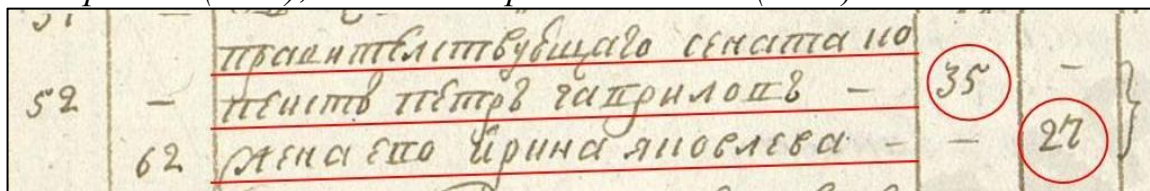 правителствующаго сената ко
52 – пеистъ петръ гавриловъ – 35 –
62 жена ево ирина яковлева – – 27